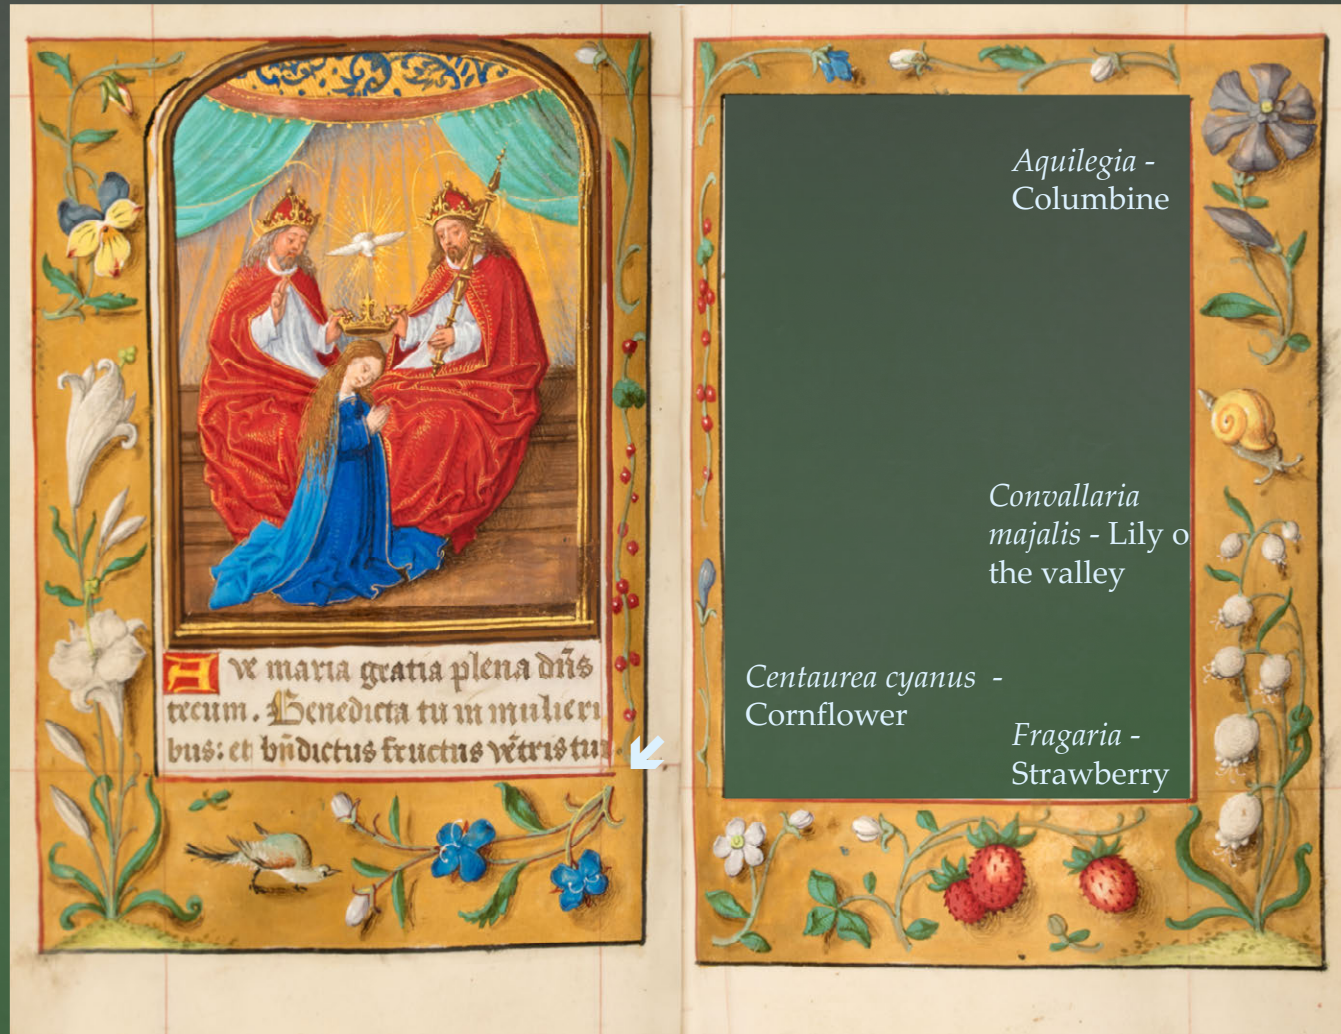 Ave maria gratia plena dñs
tecum. Benedicta tu in mulieri
bus: et bñdictus fructus vẽtris tui.
Aquilegia -
Columbine
Convallaria
majalis - Lily o
the valley
Centaurea cyanus -
Cornflower
Fragaria -
Strawberry